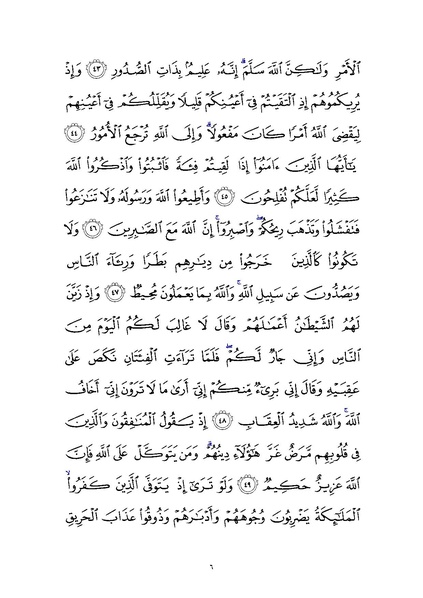 ٱلۡأَمۡرِ وَلَٰكِنَّ ٱللَّهَ سَلَّمَۚ إِنَّهُۥ عَلِيمُۢ بِذَاتِ ٱلصُّدُورِ ٤٣ وَإِذۡ
يُرِيكُمُوهُمۡ إِذِ ٱلۡتَقَيۡتُمۡ فِيٓ أَعۡيُنِكُمۡ قَلِيلٗا وَيُقَلِّلُكُمۡ فِيٓ أَعۡيُنِهِمۡ
لِيَقۡضِيَ ٱللَّهُ أَمۡرٗا كَانَ مَفۡعُولٗاۗ وَإِلَى ٱللَّهِ تُرۡجَعُ ٱلۡأُمُورُ ٤٤
يَٰٓأَيُّهَا ٱلَّذِينَ ءَامَنُوٓاْ إِذَا لَقِيتُمۡ فِئَةٗ فَٱثۡبُتُواْ وَٱذۡكُرُواْ ٱللَّهَ
كَثِيرٗا لَّعَلَّكُمۡ تُفۡلِحُونَ ٤٥ وَأَطِيعُواْ ٱللَّهَ وَرَسُولَهُۥ وَلَا تَنَٰزَعُواْ
فَتَفۡشَلُواْ وَتَذۡهَبَ رِيحُكُمۡۖ وَٱصۡبِرُوٓاْۚ إِنَّ ٱللَّهَ مَعَ ٱلصَّٰبِرِينَ ٤٦ وَلَا
تَكُونُواْ كَٱلَّذِينَ خَرَجُواْ مِن دِيَٰرِهِم بَطَرٗا وَرِئَآءَ ٱلنَّاسِ
وَيَصُدُّونَ عَن سَبِيلِ ٱللَّهِۚ وَٱللَّهُ بِمَا يَعۡمَلُونَ مُحِيطٞ ٤٧ وَإِذۡ زَيَّنَ
لَهُمُ ٱلشَّيۡطَٰنُ أَعۡمَٰلَهُمۡ وَقَالَ لَا غَالِبَ لَكُمُ ٱلۡيَوۡمَ مِنَ
ٱلنَّاسِ وَإِنِّي جَارٞ لَّكُمۡۖ فَلَمَّا تَرَآءَتِ ٱلۡفِئَتَانِ نَكَصَ عَلَىٰ
عَقِبَيۡهِ وَقَالَ إِنِّي بَرِيٓءٞ مِّنكُمۡ إِنِّيٓ أَرَىٰ مَا لَا تَرَوۡنَ إِنِّيٓ أَخَافُ
ٱللَّهَۚ وَٱللَّهُ شَدِيدُ ٱلۡعِقَابِ ٤٨ إِذۡ يَقُولُ ٱلۡمُنَٰفِقُونَ وَٱلَّذِينَ
فِي قُلُوبِهِم مَّرَضٌ غَرَّ هَٰٓؤُلَآءِ دِينُهُمۡۗ وَمَن يَتَوَكَّلۡ عَلَى ٱللَّهِ فَإِنَّ
ٱللَّهَ عَزِيزٌ حَكِيمٞ ٤٩ وَلَوۡ تَرَىٰٓ إِذۡ يَتَوَفَّى ٱلَّذِينَ كَفَرُواْۙ
ٱلۡمَلَٰٓئِكَةُ يَضۡرِبُونَ وُجُوهَهُمۡ وَأَدۡبَٰرَهُمۡ وَذُوقُواْ عَذَابَ ٱلۡحَرِيقِ
٦